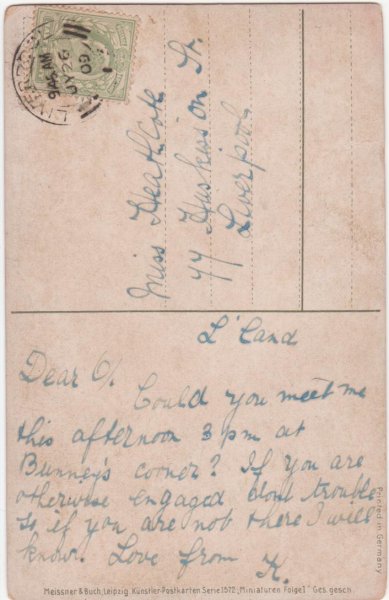 LIVERPOOL
945 AM
JY 26
09
Miss Heathcote
77 Huskisson St.
Liverpool
L'Land
Dear O/.
Could you meet me
this afternoon 3 pm at
Bunney's corner? If you are
otherwise engaged don't trouble
as if you are not there I will
know. Love from
K.
Printed in Germany
Meissner & Buch, Leipzig. Künstler-Postkarten Serie 1572 "Miniaturen Folge I" Ges. gesch.